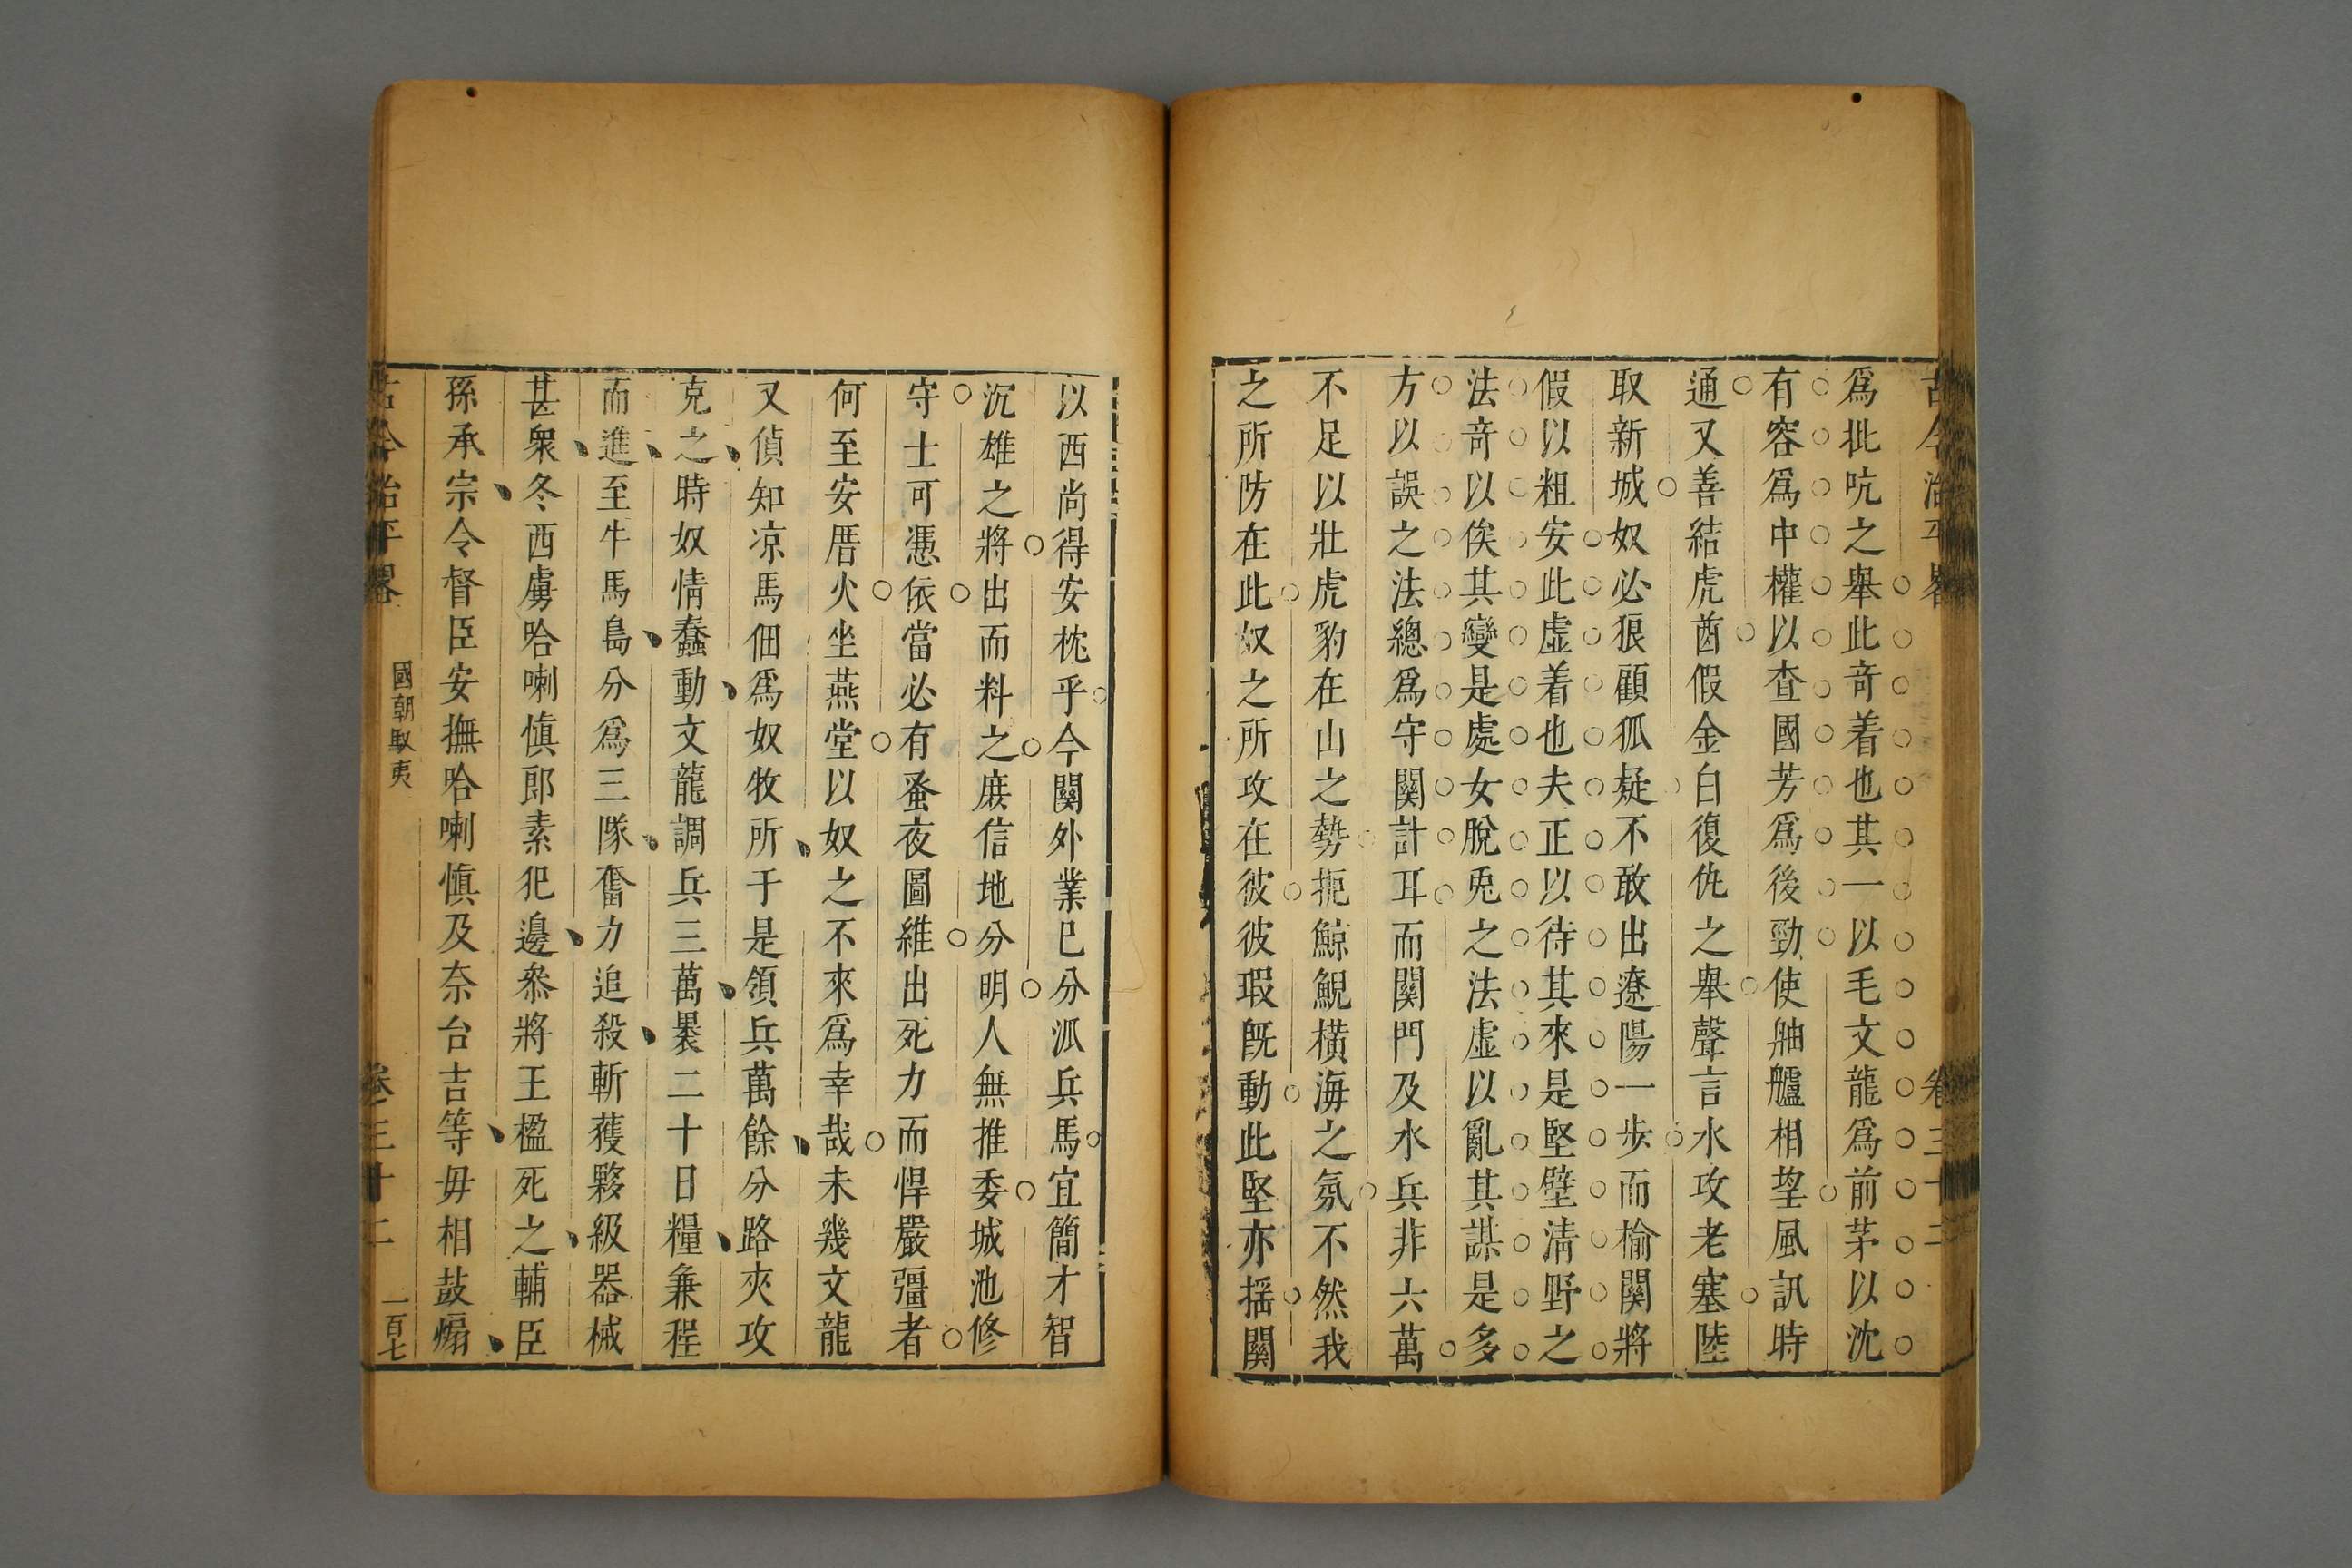 古今治平畧 卷三十二
爲批吭之舉此竒着也其一以毛文龍爲前茅以沈
有容爲中權以查國芳爲後勁使舳艫相望風訊時
通又善結虎酋假金白復仇之舉聲言水攻老塞陸
取新城奴必狼顧狐疑不敢出遼陽一步而榆關將
假以粗安此虛着也夫正以待其來是堅壁清野之
法竒以俟其變是處女脫兎之法虛以亂其謀是多
方以誤之法總爲守關計耳而關門及水兵非六萬
不足以壯虎豹在山之勢扼鯨鯢橫海之氛不然我
之所防在此奴之所攻在彼彼瑕旣動此堅亦揺關
以西尚得安枕乎今關外業巳分泒兵馬宜簡才智
沉雄之將出而料之庻信地分明人無推委城池修
守士可憑依當必有蚤夜圖維出死力而悍嚴彊者
何至安厝火坐燕堂以奴之不來爲幸哉未幾文龍
又偵知凉馬佃爲奴牧所于是領兵萬餘分路夾攻
克之時奴情蠢動文龍調兵三萬褁二十日糧兼程
而進至牛馬島分爲三隊奮力追殺斬獲夥級器械
甚衆冬西虜哈喇慎郎素犯邊叅將王楹死之輔臣
孫承宗令督臣安撫哈喇慎及奈台吉等毋相鼓煽
古今治平畧 國朝馭夷 卷三十二 一百七